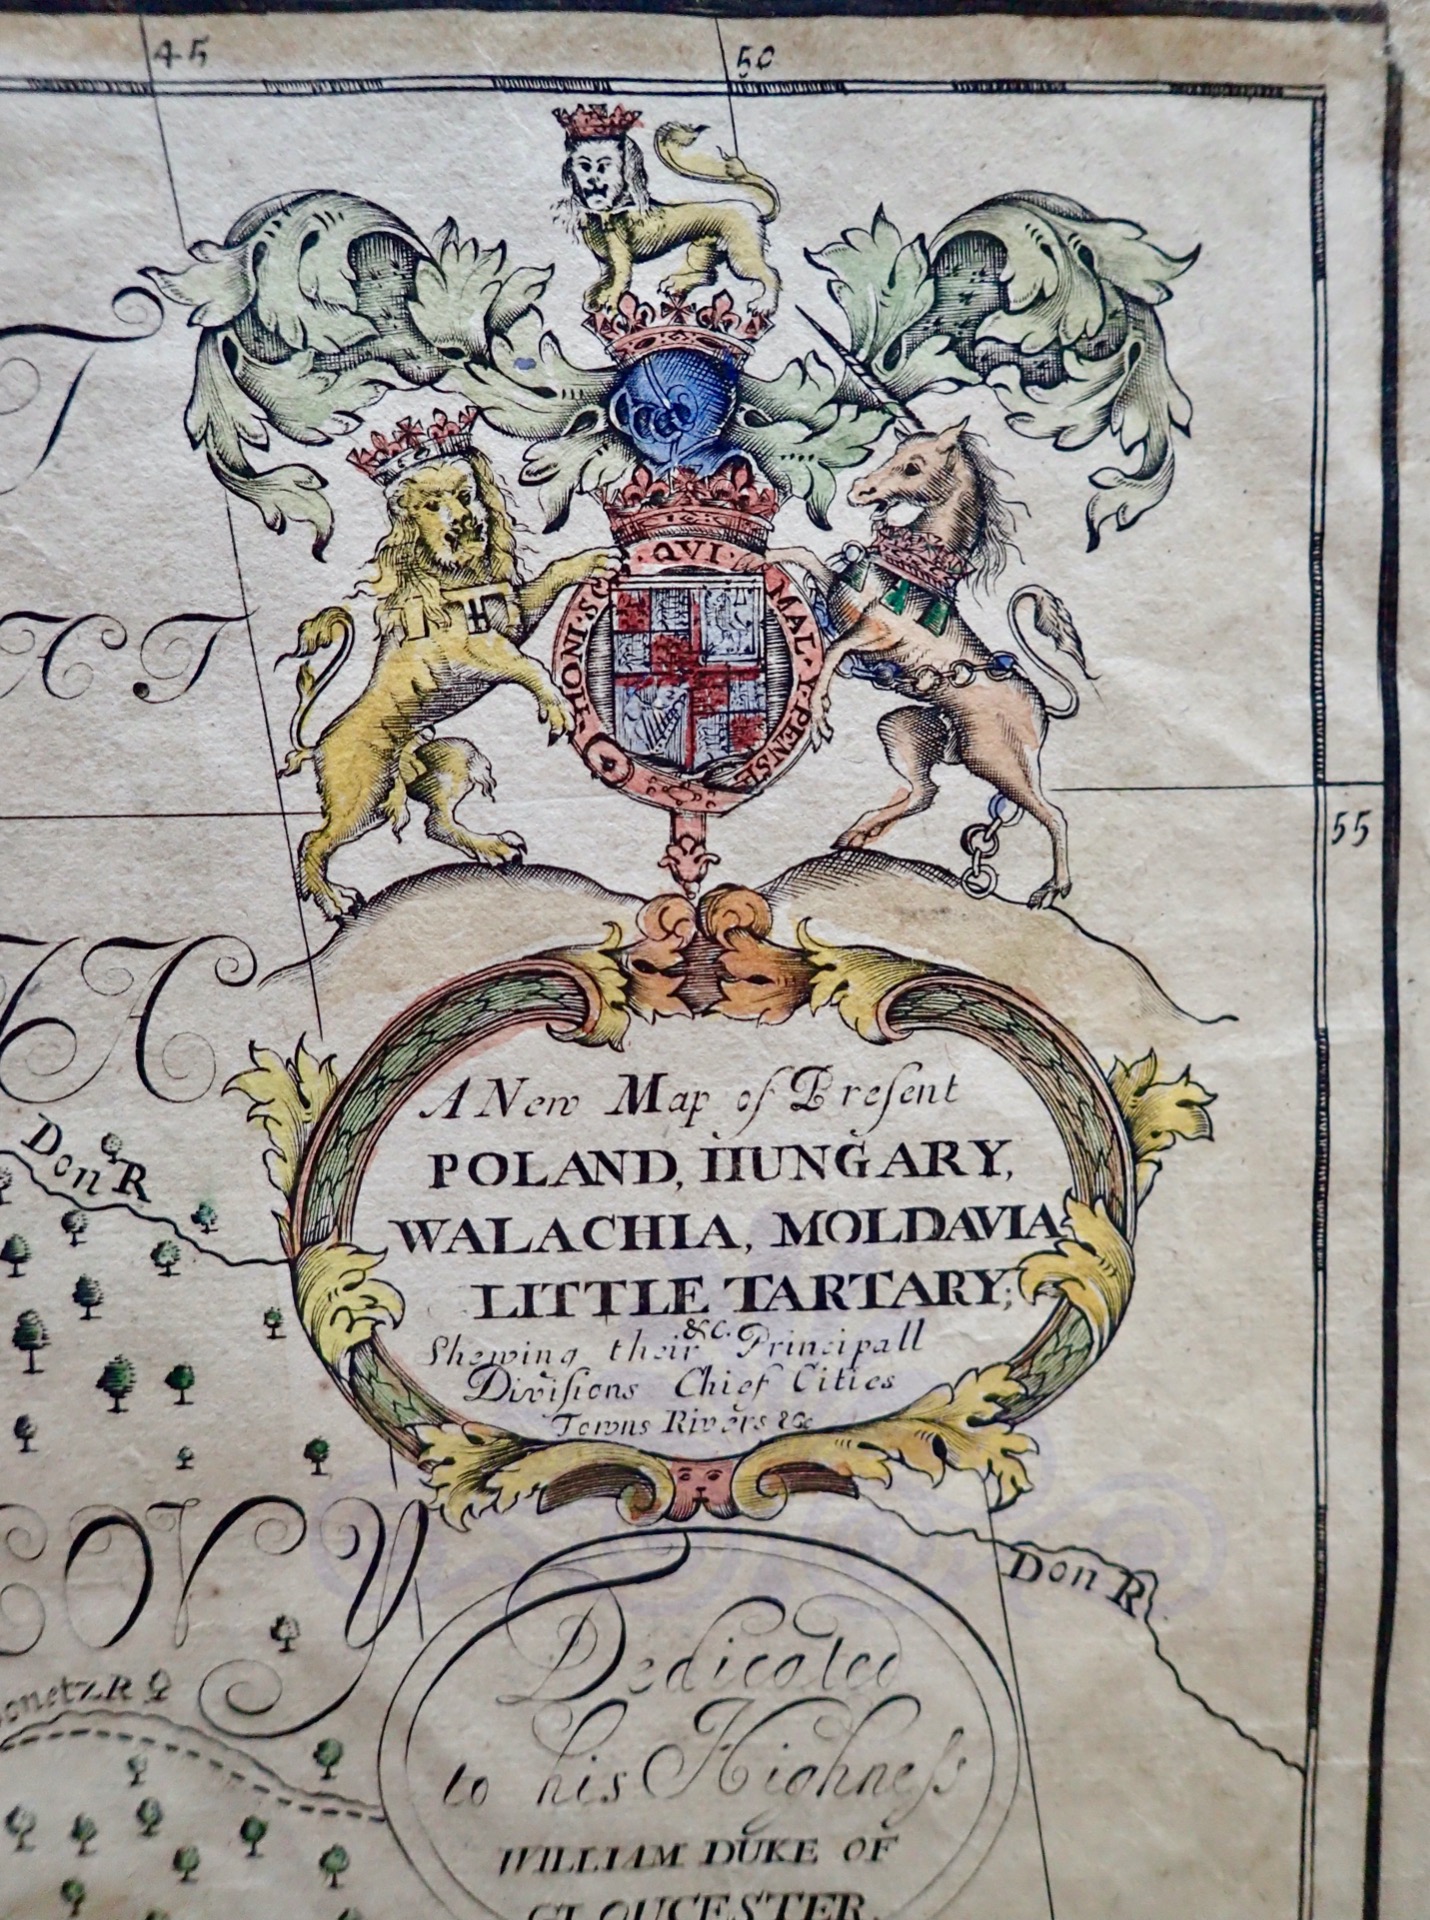 45
50
HONI·SO
·QVI·
MAL·Y·PENSE
55
A New Map of Preſent
POLAND, HUNGARY,
WALACHIA, MOLDAVIA
LITTLE TARTARY;
&c.
Shewing their Principall
Diviſions Chief Cities
Towns Rivers &c
Don R
Don R
Dedicated
to his Highneſs
WILLIAM DUKE OF
GLOUCESTER.